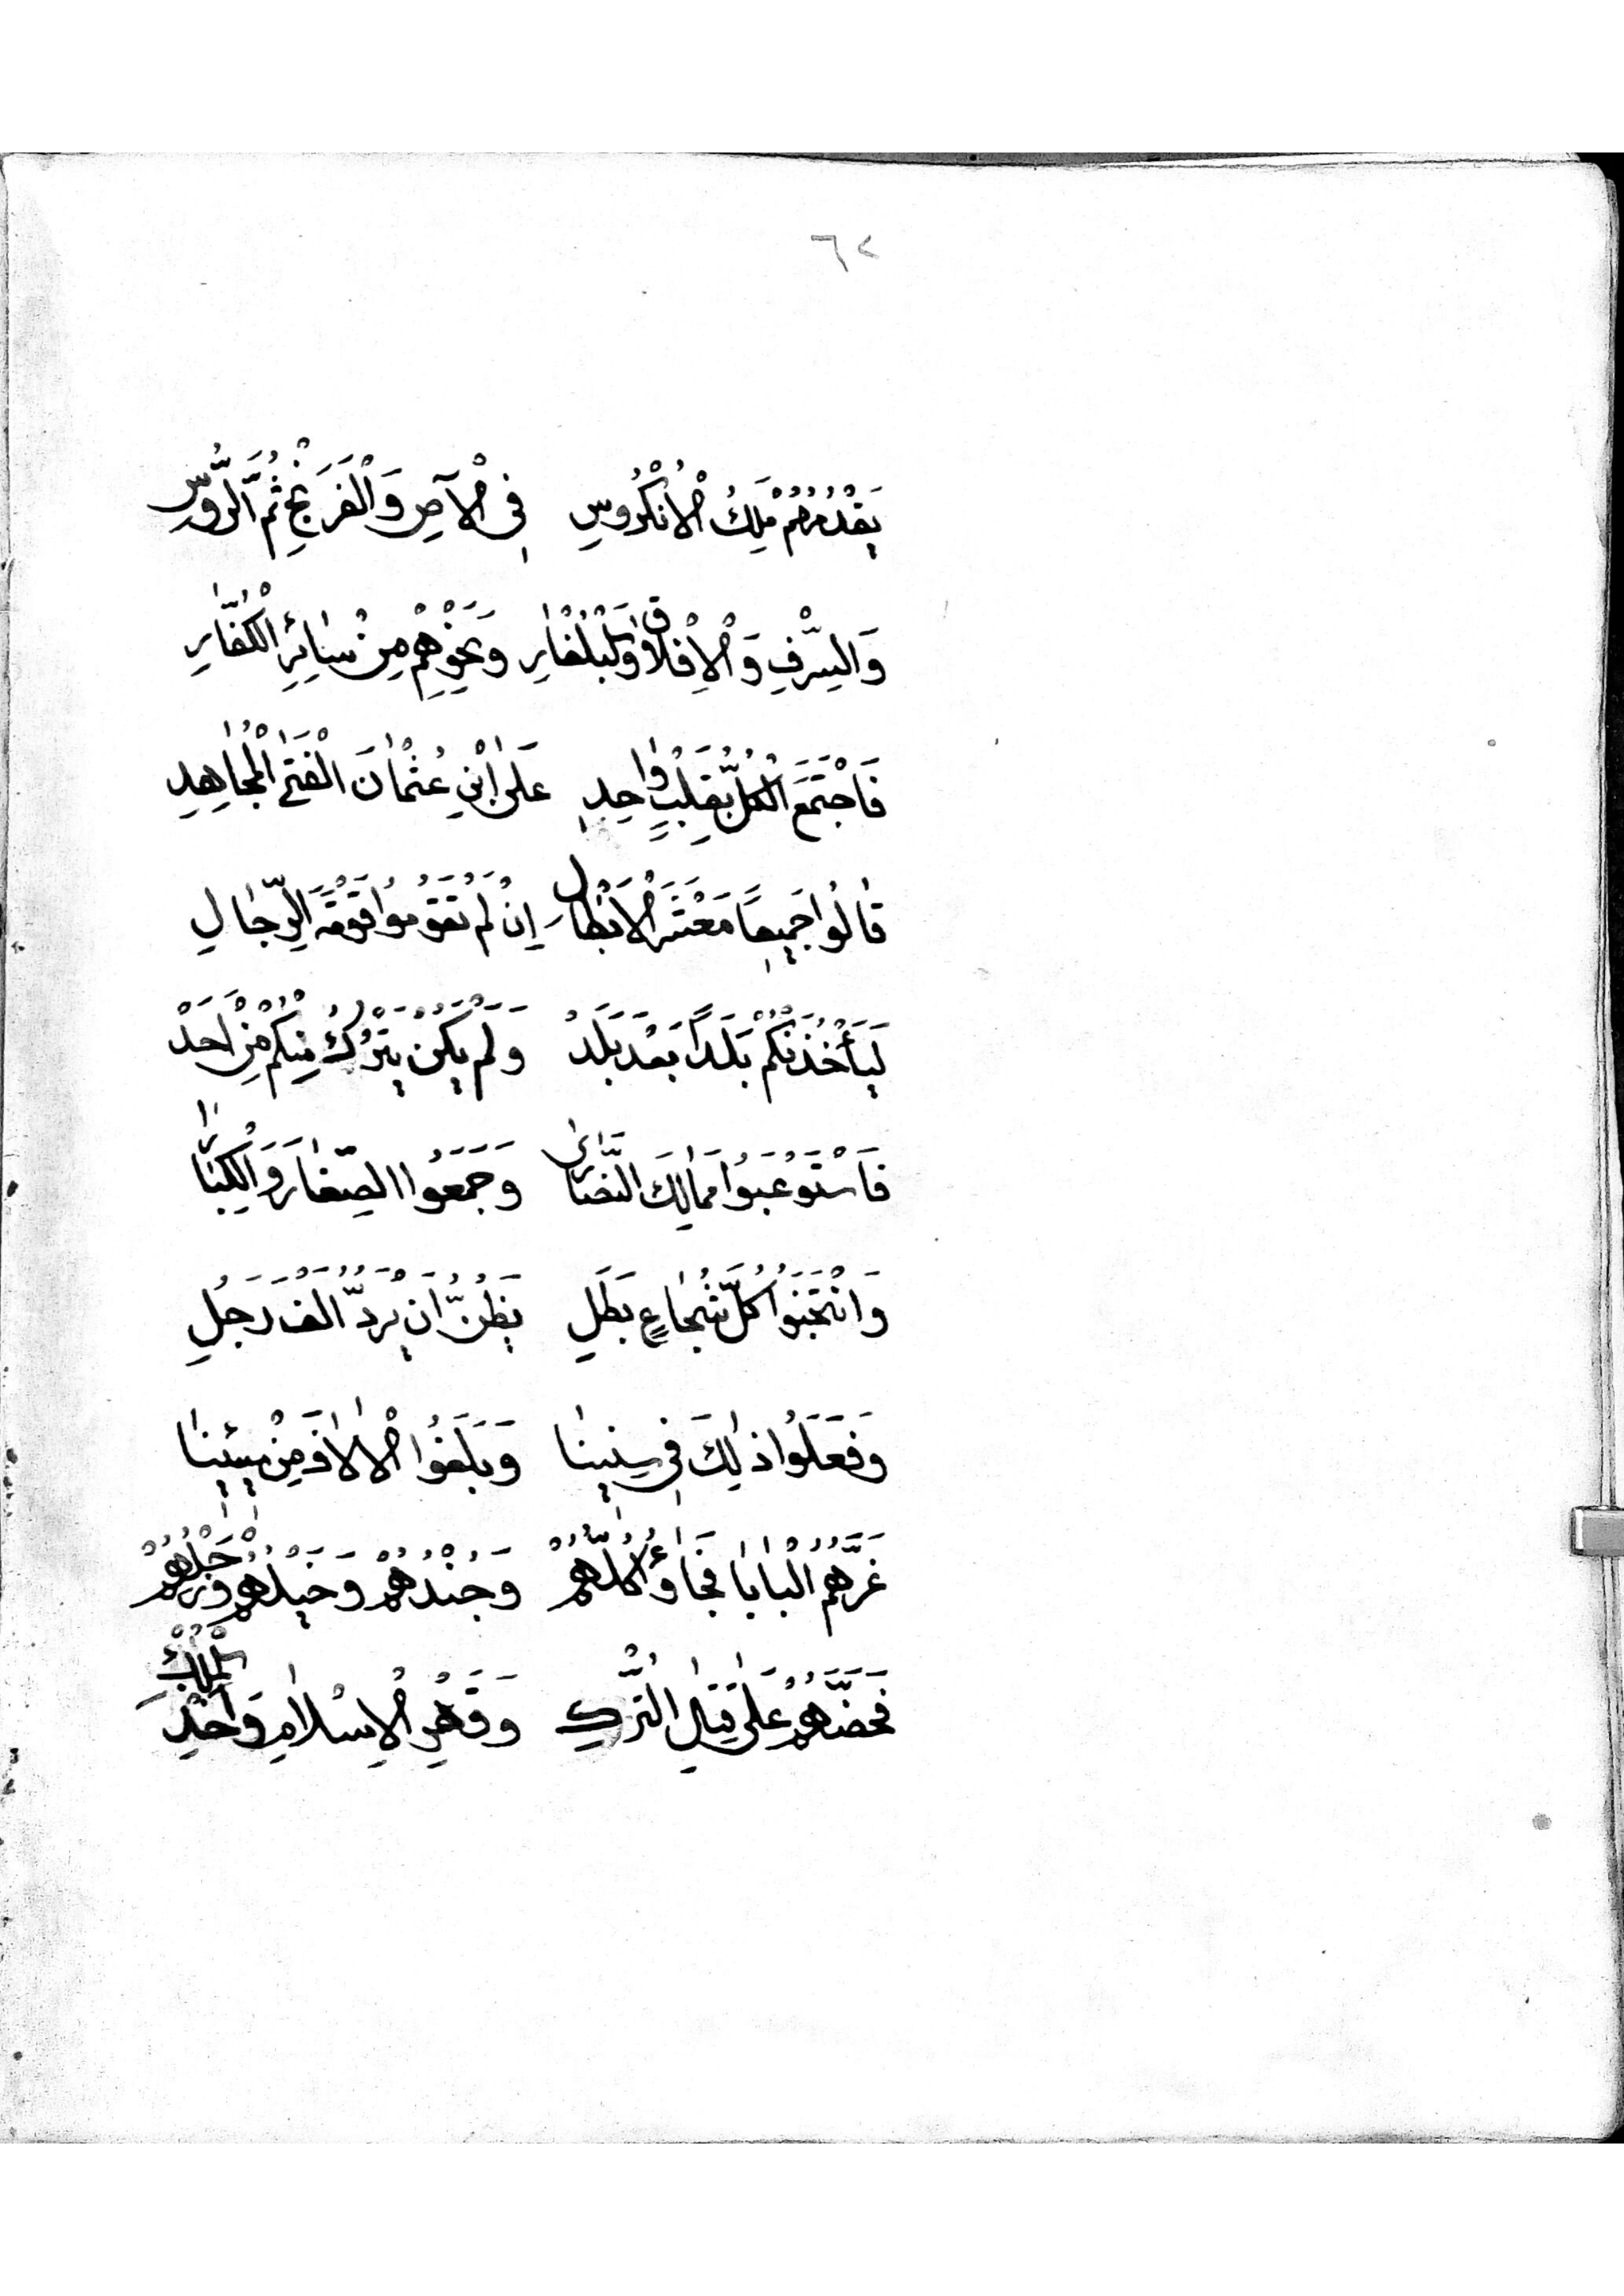 ٦٢
يَقْدُمُهُمْ مَلِكُ الْاُنْكُرُوسِ فِى الْآصِ وَالْفَرَنْجِ ثُمَّ الرُّوسِ
وَالسِّرْفِ وَالْاِفْلَاقِ وَالْبُلْغَارِ وَنَحْوِهِمْ مِنْ سَائِرِ الْكُفَّارِ
فَاجْتَمَعَ الْكُلُّ بِقَلْبٍ وَاحِدِ عَلَى ابْنِ عُثْمَانَ الْفَتَى الْمُجَاهِدِ
قَالُوا جَمِيعًا مَعْشَرَ الْاَبْطَالِ اِنْ لَمْ تَقُومُوا قَوْمَةَ الرِّجَالِ
لَيَأْخُذَنْكُمْ بَلَدًا بَعْدَ بَلَدْ وَلَمْ يَكُنْ يَتْرُكُ مِنْكُمْ مِنْ اَحَدْ
فَاسْتَوْعَبُوا مَمَالِكَ النَّصَارَى وَجَمَعُوا الصِّغَارَ وَالْكِبَارَا
وَانْتَخَبُوا كُلَّ شُجَاعٍ بَطَلِ يَظُنُّ اَنْ يَرُدَّ اَلْفَ رَجُلِ
وَفَعَلُوا ذَلِكَ فِى سِنِينَا وَبَلَغُوا الْالَافَ مِنْ مِئِينَا
غَرَّهُمُ الْبَابَا فَجَاؤُا كُلُّهُمْ وَجُنْدُهُمْ وَخَيْلُهُمْ وَرَجْلُهُمْ
فَحَضَّهُمْ عَلَى قِتَالِ التُّرْكِ وَقَهْرِ الْاِسْلَامِ وَاَخْذِ الْمُلْكِ